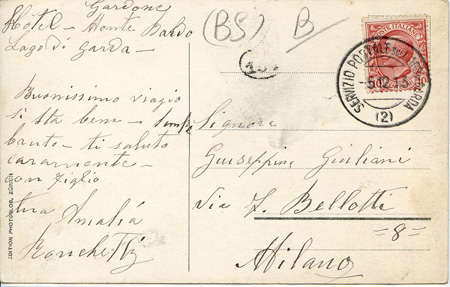 Gardone
Hotel - Monte Baldo
Lago di Garda -
Buonissimo viagio
si sta bene - tempo
bruto - ti saluto
caramente -
con figlio
tua Amalia
Ronchetti
(BS) B
POSTE ITALIANE
10
SERVIZIO POSTALE
5.12.13
(2)
Signora
Giuseppina Giuliani
Via F. Bellotti
=8=
Milano
EDITION PHOTOGLOB, ZÜRICH